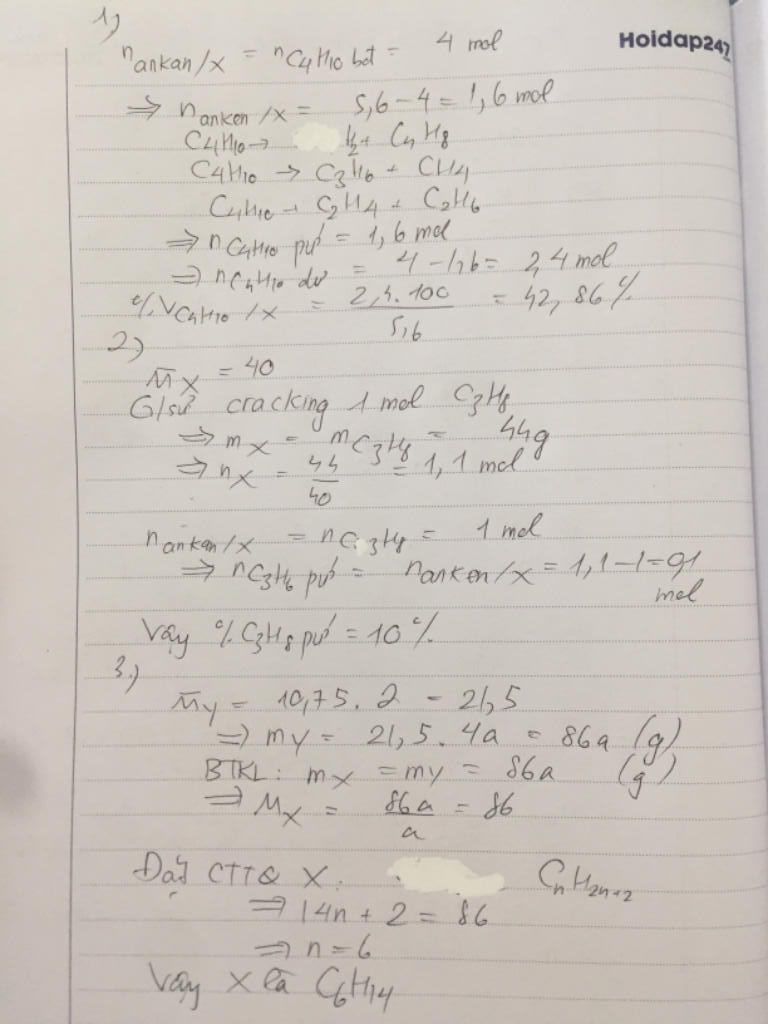 1)
Hoidap247
n ankan/X = n C4H10 bđ = 4 mol
⇒ n anken/X = 5,6 - 4 = 1,6 mol
C4H10 → H2 + C4H8
C4H10 → C3H6 + CH4
C4H10 → C2H4 + C2H6
⇒ n C4H10 pứ = 1,6 mol
⇒ n C4H10 dư = 4 - 1,6 = 2,4 mol
%V C4H10/X = 2,4.100/5,6 = 42,86%
2)
M̄X = 40
G/sử cracking 1 mol C3H8
⇒ mX = m C3H8 = 44g
⇒ nX = 44/40 = 1,1 mol
n ankan/X = n C3H8 = 1 mol
⇒ n C3H6 pứ = n anken/X = 1,1 - 1 = 0,1
mol
Vậy % C3H8 pứ = 10%
3.)
M̄Y = 10,75.2 = 21,5
⇒ mY = 21,5.4a = 86a (g)
BTKL: mX = mY = 86a (g)
⇒ MX = 86a/a = 86
Đặt CTTQ X: CnH2n+2
⇒ 14n + 2 = 86
⇒ n = 6
Vậy X là C6H14